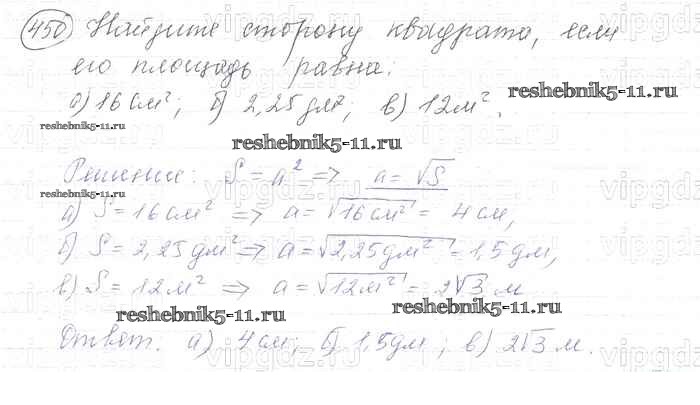 450 Найдите сторону квадрата, если
его площадь равна:
а) 16 см²; б) 2,25 дм²; в) 12 м².
reshebnik5-11.ru
reshebnik5-11.ru
reshebnik5-11.ru
Решение: S = a² => a = √S
reshebnik5-11.ru
а) S = 16 см² => a = √16 см² = 4 см,
б) S = 2,25 дм² => a = √2,25 дм² = 1,5 дм,
в) S = 12 м² => a = √12 м² = 2√3 м
reshebnik5-11.ru
reshebnik5-11.ru
Ответ: а) 4 см; б) 1,5 дм; в) 2√3 м.